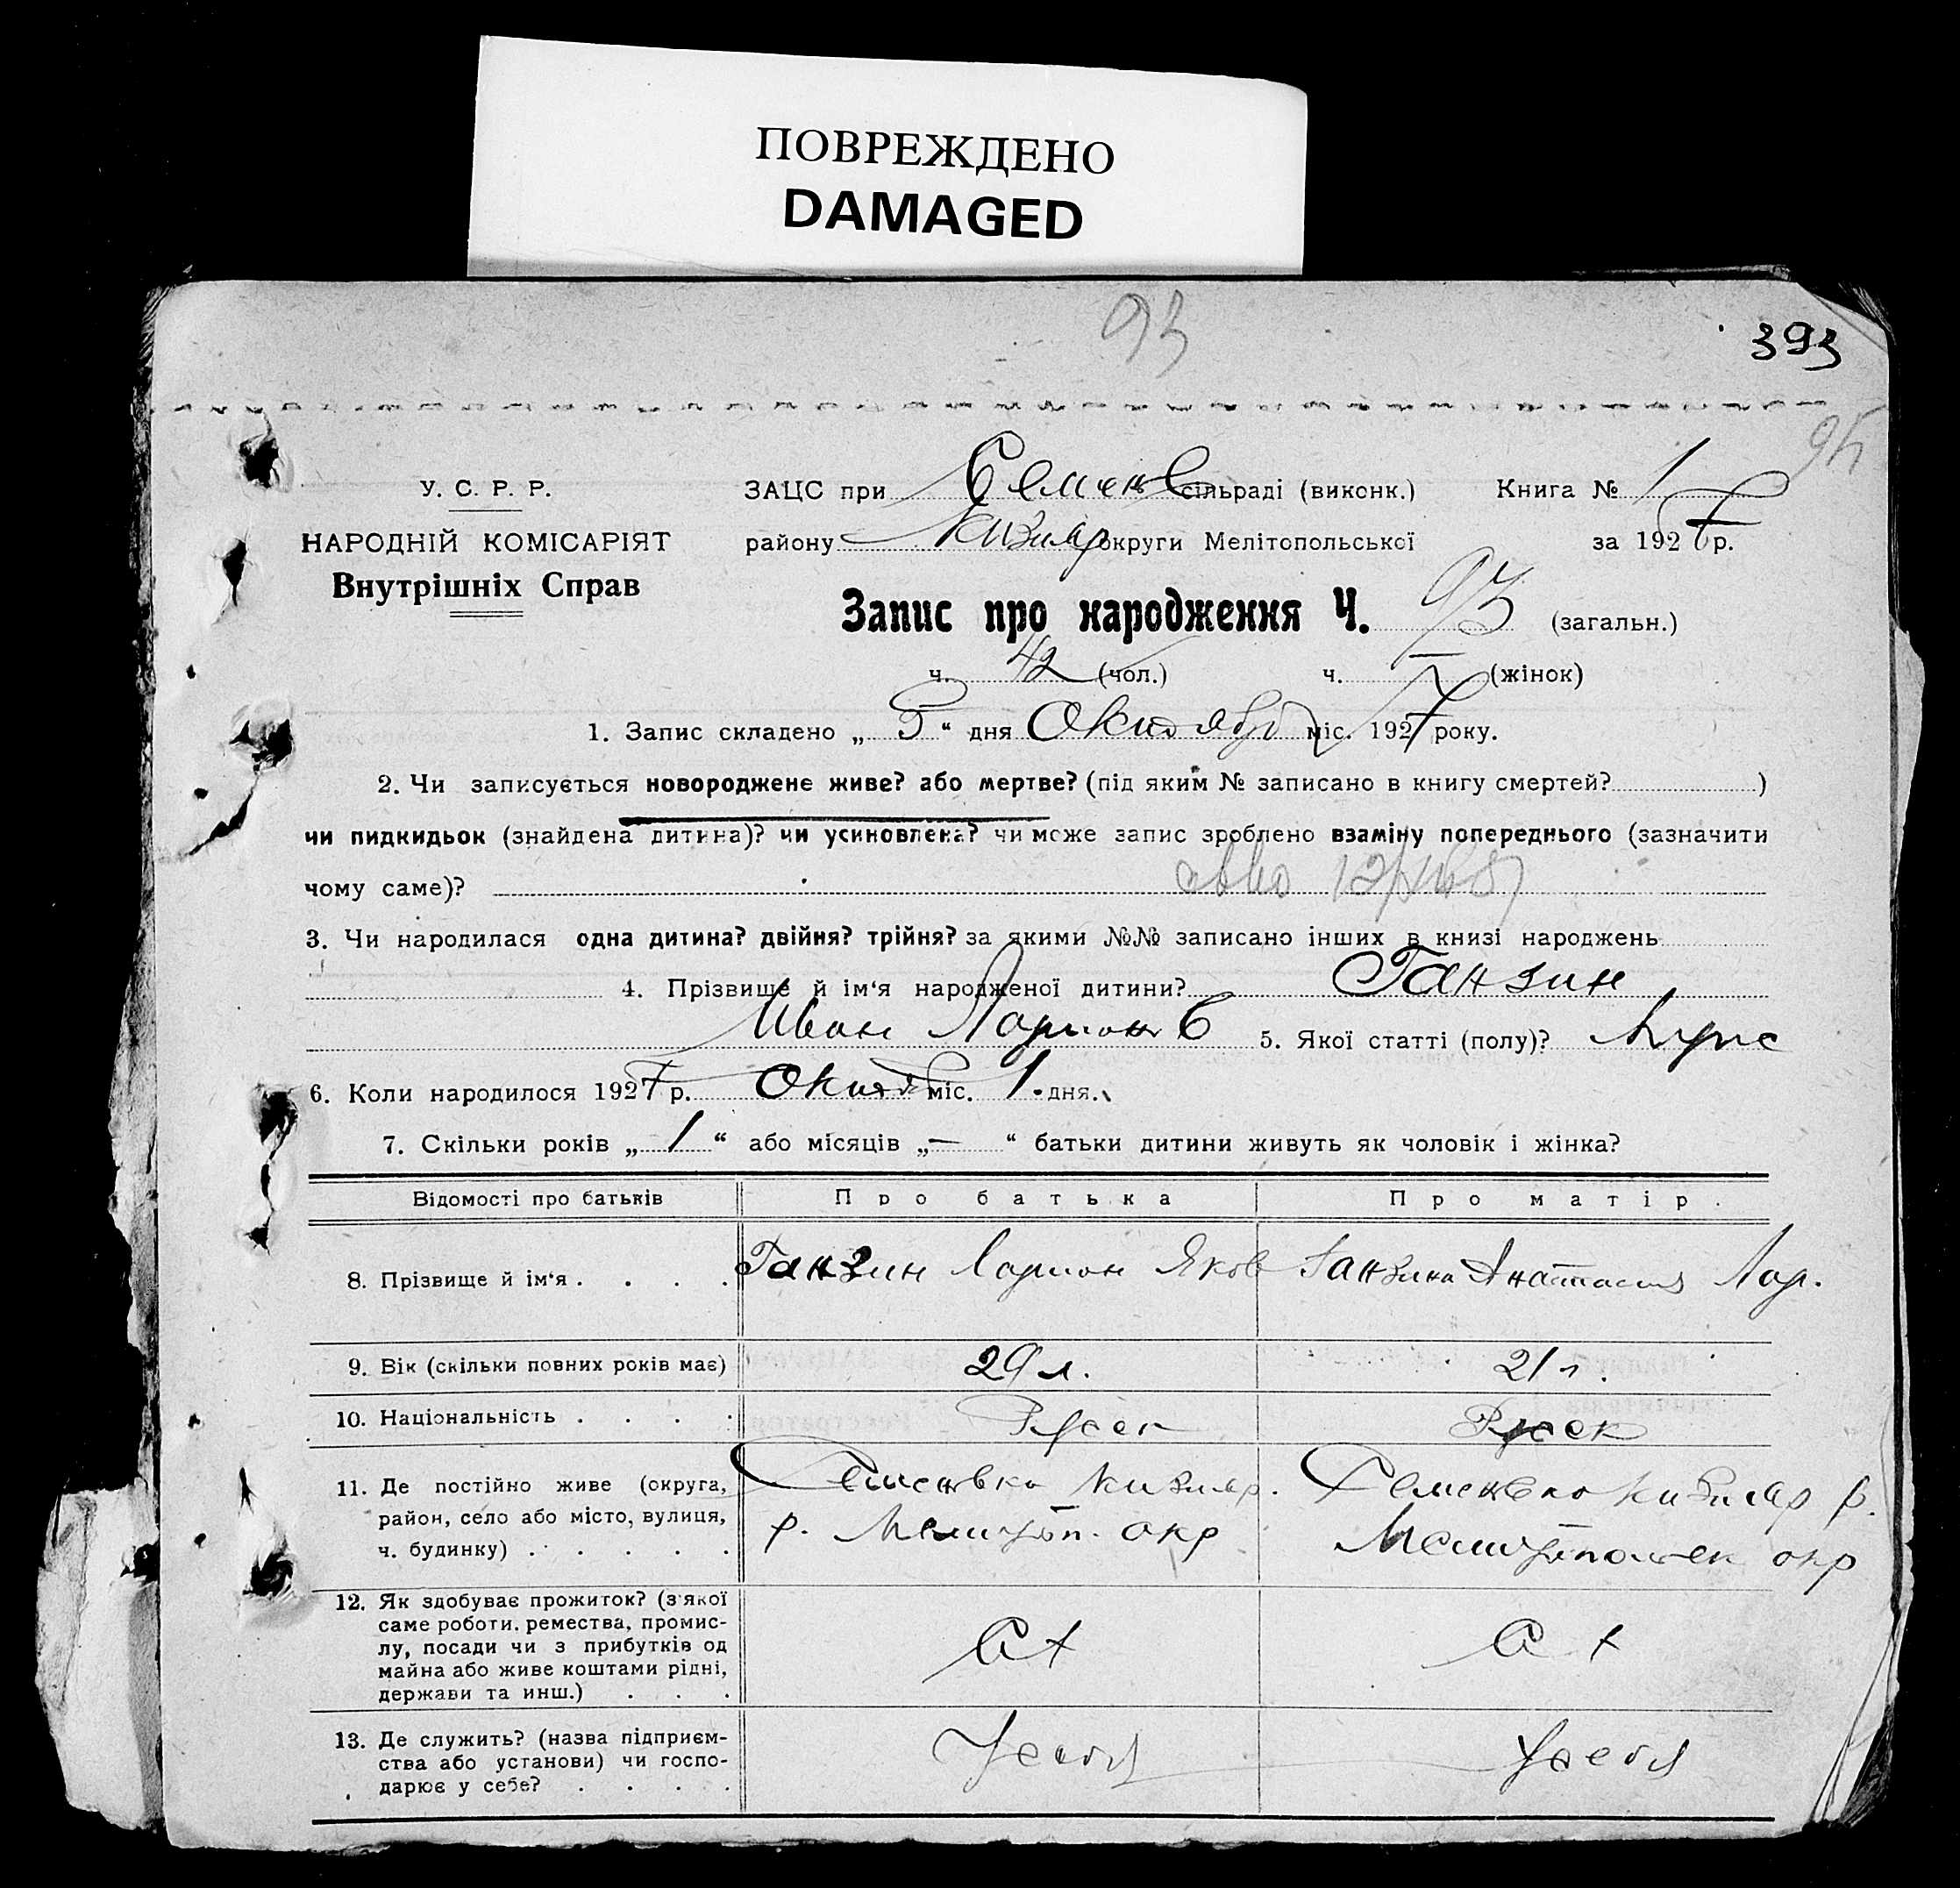 ПОВРЕЖДЕНО
DAMAGED
93
393
У. С. Р. Р.
ЗАЦС при Семен сільраді (виконк.) Книга № 1
НАРОДНІЙ КОМІСАРІЯТ
району Кизияр округи Мелітопольської за 1927 р.
Внутрішніх Справ
Запис про народження Ч. 93 (загальн.)
ч. 42 (чол.) ч. (жінок)
1. Запис складено „ 5 “ дня Октября міс. 1927 року.
2. Чи записується новороджене живе? або мертве? (під яким № записано в книгу смертей? )
чи пидкидьок (знайдена дитина)? чи усиновлена? чи може запис зроблено взаміну попереднього (зазначити
чому саме)?
3. Чи народилася одна дитина? двійня? трійня? за якими №№ записано інших в книзі народжень
4. Прізвище й ім‘я народженої дитини? Ганзин
Иван Ларионов 5. Якої статті (полу)? Муж
6. Коли народилося 1927 р. Октяб міс. 1 дня.
7. Скільки років „ 1 “ або місяців „ — “ батьки дитини живуть як чоловік і жінка?
Відомості про батьків Про батька Про матір.
8. Прізвище й ім‘я . . . . Ганзин Ларион Яков Ганзина Анастасия Лар.
9. Вік (скільки повних років має) 29 л. 21 г.
10. Національність . . . . Русск Русск
11. Де постійно живе (округа, Семеновка Кизияр. Семеновка Кизияр р.
район, село або місто, вулиця, р. Мелитоп. окр Мелитопольск окр
ч. будинку) . . . . .
12. Як здобуває прожиток? (з якої
саме роботи, ремества, промис-
лу, посади чи з прибутків од
майна або живе коштами рідні,
держави та инш.) . . .
13. Де служить? (назва підприєм-
ства або установи) чи госпо-
дарює у себе? . . . . У себя У себя